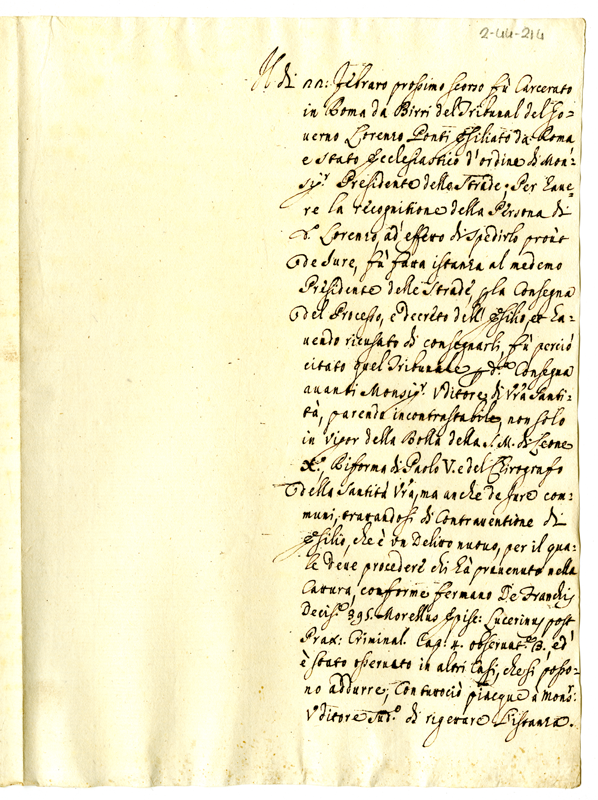 2-44-214
Al di 22: Febraro prossimo scorso fù Carcerato
in Roma da Birri del Tribunal del Go=
uerno Lorenzo Ponti Esiliato da Roma
e Stato Ecclesiastico d'ordine di Mon:
sigr. Presidente delle Strade; Per haue=
re la recognitione della Persona di
d. Lorenzo, ad effetto di spedirlo proùt
de Jure, fù fatta istanza al medemo
Presidente delle Strade, p la Consegna
del Processo, e decreto dell' Esilio, et ha=
uendo ricusato di consegnarli, fù perciò
citato quel Tribunale p da. Consegna
auanti Monsigr. Vditore di Vra Santi=
tà, parendo incontrastabile, non solo
in vigor della Bolla della S. M. di Leone
X.o, Riforma di Paolo V. e del Chirografo
della Santità Vra, ma anche de Jure com=
muni, trattandosi di Contrauentione di
Esilio, che è vn Delitto nuouo, per il qua=
le deue procedere chi hà preuenuto nella
Cattura, conforme fermano De Franchis
Decis.e 395. Morellus Episc: Lucerinus post
Prax: Criminal. Cap: 4. obseruat.e 13. ed
è stato osseruato in altri Casi, che si posso=
no addurre; Contuttociò piacque a Monsr.
Vditore sud.o di rigettare l'istanza.